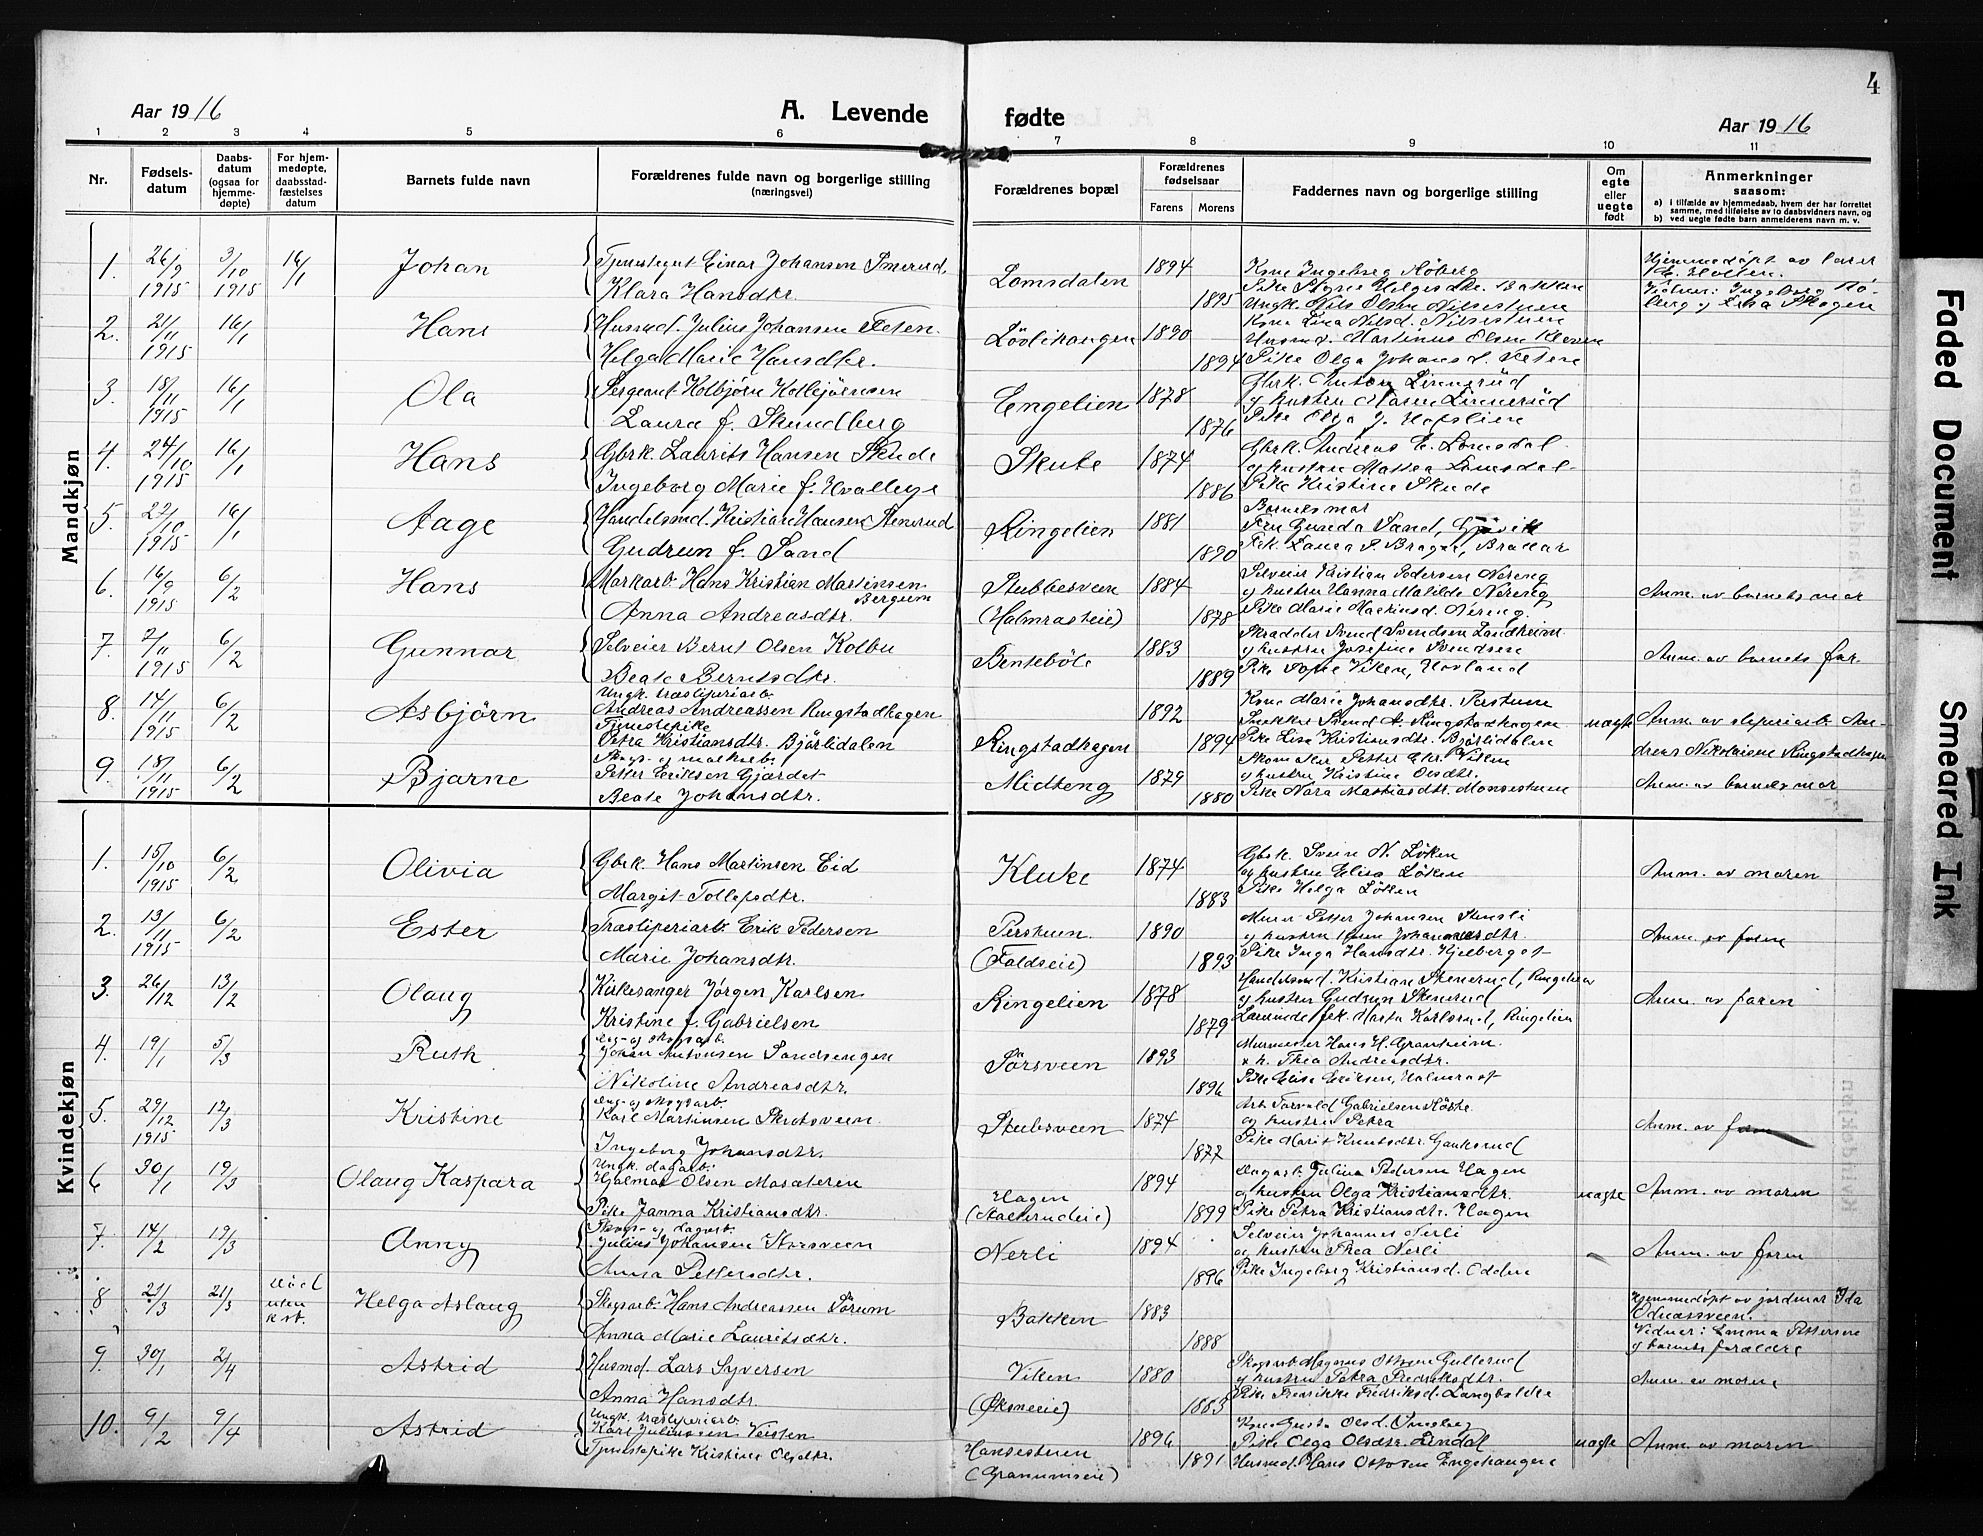 4
Aar 1916
A. Levende fødte
Aar 1916
1 2 3 4 5 6 7 8 9 10 11
Nr.
Fødsels-datum
Daabs-datum (ogsaa for hjemme-døpte)
For hjem-medøpte, daabsstad-fæstelses datum
Barnets fulde navn
Forældrenes fulde navn og borgerlige stilling (næringsvei)
Forældrenes bopæl
Forældrenes fødselsaar
Farens Morens
Faddernes navn og borgerlige stilling
Om egte eller uegte født
Anmerkninger saasom:
a) i tilfælde av hjemmedaab, hvem der har forrettet samme, med tilføielse av to daabsvidners navn, og
b) ved uegte fødte barn anmelderens navn m. v.
Mandkjøn
1. 26/9 1915 3/10 1915 16/1 Johan
Einar Johansen
Klara Hansdtr.
Lomsdalen 1894 1895
Kone Ingeborg
Pike Signe Helgesdtr. Bakken
Ungk. Nils Olsen Nilsestuen
Hjemmedøpt av lærer
E. Holten.
2. 21/11 1915 16/1 Hans
Husmd. Julius Johansen
Helga Marie Hansdtr.
1890 1894
Kone Lina Nilsd. Nilsestuen
Husmd. Martinus Olsen
Pike Olga Johansd.
3. 18/11 1915 16/1 Ola
Sergeant Kolbjørn
Laura f. Skundberg
Engelien 1878 1876
Gbrk. Anton Linnerud
og hustru Maren Linnerud
Pike Olga J. Hofslien
4. 24/10 1915 16/1 Hans
Gbrk. Laurits Hansen Skude
Ingeborg Marie f. Hvalleye
Skute 1874 1886
Gbrk. Andreas E. Lomsdal
og hustru Mathea Lomsdal
Pike Kristine Skude
5. 22/10 1915 16/1 Aage
Handelsmd. Kristian Hansen Stenerud
Gudrun f. Sand
Ringelien 1881 1890
Barnets mor
Frk. Gunda Sand, Gjøvik
Frk. Laura S. Brager, Brallar
6. 16/9 1915 6/2 Hans
Markarb. Hans Kristian Martinsen
Bergum
Anna Andreasdtr.
Stubbesveen
(Halmrasteie) 1884 1878
Selveier Kristian Pedersen Nereng
og hustru Hanna Matilde Nereng
Pike Marie Martinsd. Nereng
Anm. av barnets mor
7. 2/11 1915 6/2 Gunnar
Selveier Bernt Olsen Kolbu
Beate Berntsdtr.
Bentebøle 1883 1889
Skrædder Svend Svendsen Landheim
og hustru Josefine Svendsen
Pike Sofie Viken, Hovland
Anm. av barnets far.
8. 14/11 1915 6/2 Asbjörn
Ungk. træsliperiarb.
Andreas Andreassen Ringstadhagen
Tjenestepike
Petra Kristiansdtr. Bjørlidalen
Ringstadhagen 1892 1894
Kone Marie Johansdtr. Perstuen
Snekker Svend A. Ringstadhagen
Pike Lisa Kristiansdtr. Bjørlidalen
uægte
Anm. av sliperiarb. An-
dreas Nikolaisen Ringstadhagen
9. 18/11 1915 6/2 Bjarne
Petter Eriksen Gjærdet
Beate Johansdtr.
Midteng 1879 1880
Skomaker Petter Chr. Viken
og hustru Kristine Olsdtr.
Pike Nora Mathiasdtr. Monsestuen
Anm. av barnets mor
Kvindekjøn
1. 15/10 1915 6/2 Olivia
Gbrk. Hans Martinsen Eid
Margit Tollefsdtr.
Kluke 1874 1883
Gbrk. Svein N. Løken
og hustru Elise Løken
Pike Helga Løken
Anm. av moren
2. 13/11 1915 6/2 Ester
Træsliperiarb. Erik Pedersen
Marie Johansdtr.
Perstuen
(Faldseie) 1890 1893
Murer Petter Johansen Stensli
og hustru Johannesdtr.
Pike Inga Hansdtr. Kjelberget
Anm. av faren
3. 26/12 13/2 Olaug
Kirkesanger Jørgen Karlsen
Kristine f. Gabrielsen
Ringelien 1878 1879
Handelsmd. Kristian Stenerud, Ringelien
og hustru Gudrun Stenerud
Lærerinde frk. Marta Karlsrud, Ringelien
Anm. av faren
4. 19/1 5/3 Ruth
Dag- og skogsarb.
Johan Antonsen Sandsengen
Nikoline Andreasdtr.
Sørsveen 1893 1896
Murmester Hans H. Granheim
o. h. Thea Andreasdtr.
Pike Elise Eriksen, Halmrast
5. 29/12 1915 12/3 Kristine
Dag- og skogsarb.
Karl Martinsen Skutsveen
Ingeborg Johansdtr.
Stubsveen 1874 1877
Arb. Torvald Gabrielsen
og hustru Petra
Pike Marit Knutsdtr. Gauksrud
Anm. av faren
6 30/1 19/3 Olaug Kaspara
Ungk. dagarb.
Hjalmar Olsen Masæteren
Pike Janna Kristiansdtr.
Hagen
1894 1899
Dagarb. Julius Pedersen Hagen
og hustru Olga Kristiansdtr.
Pike Petra Kristiansdtr. Hagen
uægte
Anm. av moren
7. 14/2 19/3 Anny
Skogs- og dagarb.
Julius Johansen Storsveen
Anna Pettersdtr.
Nerli 1894 1896
Selveier Johannes Nerli
og hustru Thea Nerli
Pike Ingeborg Kristiansd. Odden
Anm. av faren
8 21/3 21/3 Død uten k.st. Helga Aslaug
Skogsarb. Hans Andreassen Sørum
Anna Marie Lauritsdtr.
Bakken 1883 1888
Hjemmedøpt av jordmor Ida
Odnæssveen.
Vidner: Emma Pettersen
og barnets forældre
9. 30/1 2/4 Astrid
Husmd. Lars Syversen
Anna Hansdtr.
Viken
(Øksneeie) 1880 1883
Skogsarb. Magnus Gullerud
og hustru Petra Fredriksdtr.
Pike Fredrikke Fredriksd. Langbakke
Anm. av moren
10. 9/2 9/4 Astrid
Ungk. træsliperiarb.
Karl Juliussen Veisten
Tjenestepike Kristine Olsdtr.
Hansestuen
(Granumseie) 1896 1891
Kone Gusta Olsd.
Pike Olga Olsdtr. Lindal
Husmd. Hans Ottosen Engehaugen
uægte
Anm. av moren
Faded Document
Smeared Ink